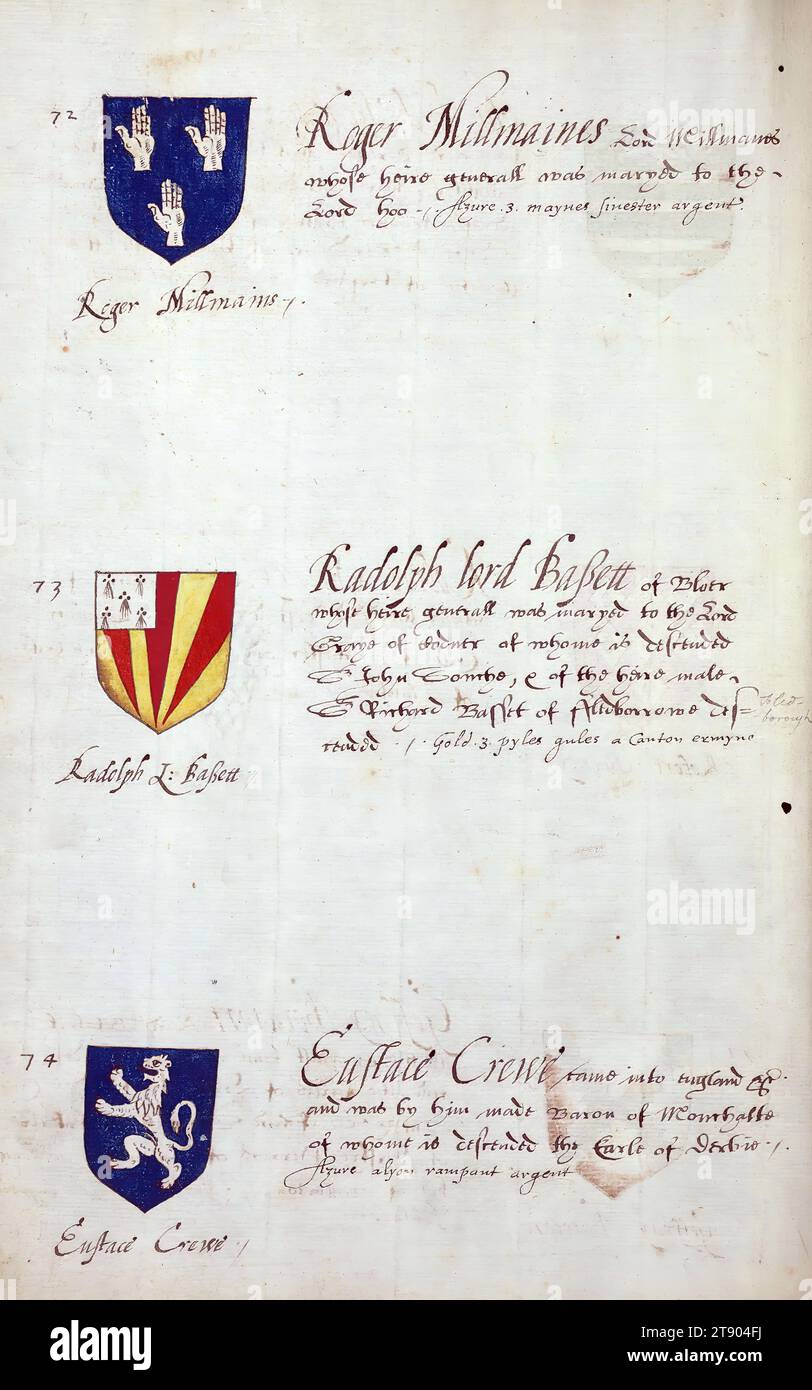 72
Roger Millmaines Lord Millmanes
whose heire generall was maryed to the
Lord hoo Azure .3. maynes sinester argent.
Roger Millmains
73
Radolph lord Baßett of Bloer
whose heire generall was maryed to the Lord
Graye of Codner of whome is descended
S John Souche, & of the heire male
S Richard Basset of Aldborrowe des=
cended Gold .3. pyles gules a Canton ermyne
borough
Radolph L: Baßett
74
Eustace Crewe came into england &c
and was by him made Baron of Mounhalte
of whome is descended the Earle of Derbie
Azure a lyon rampant argent
Eustace Crewe
alamy
alamy
alamy
alamy
a
a
a
a
alamy
Image ID: 2T904FJ
www.alamy.com